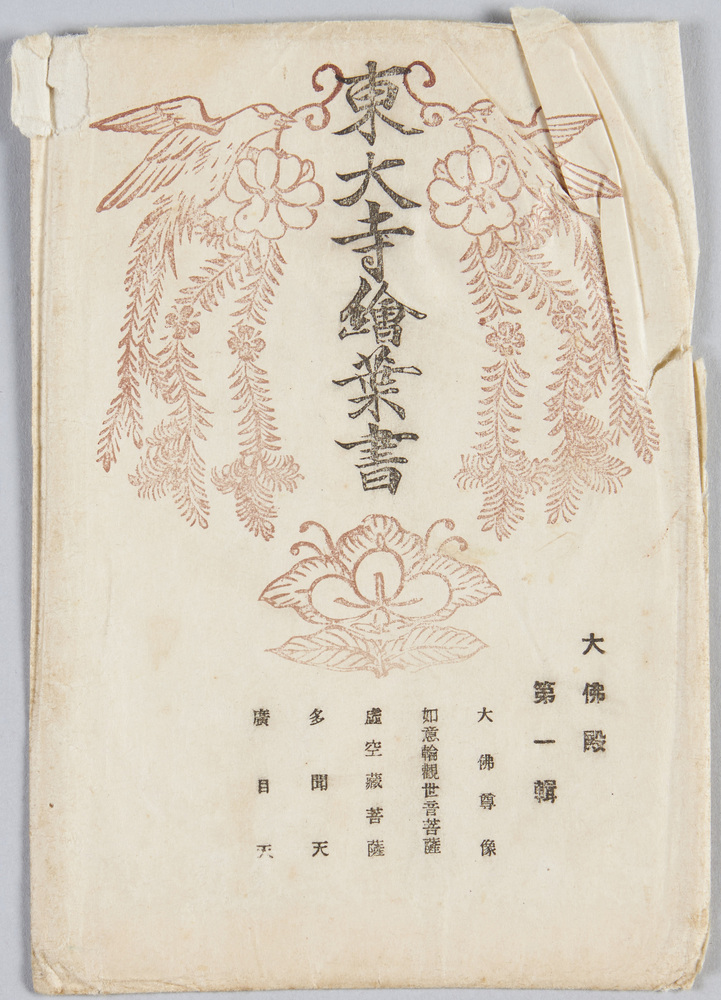 東大寺繪葉書
大佛殿
第一輯
大佛尊像
如意輪觀世音菩薩
虛空藏菩薩
多聞天
廣目天